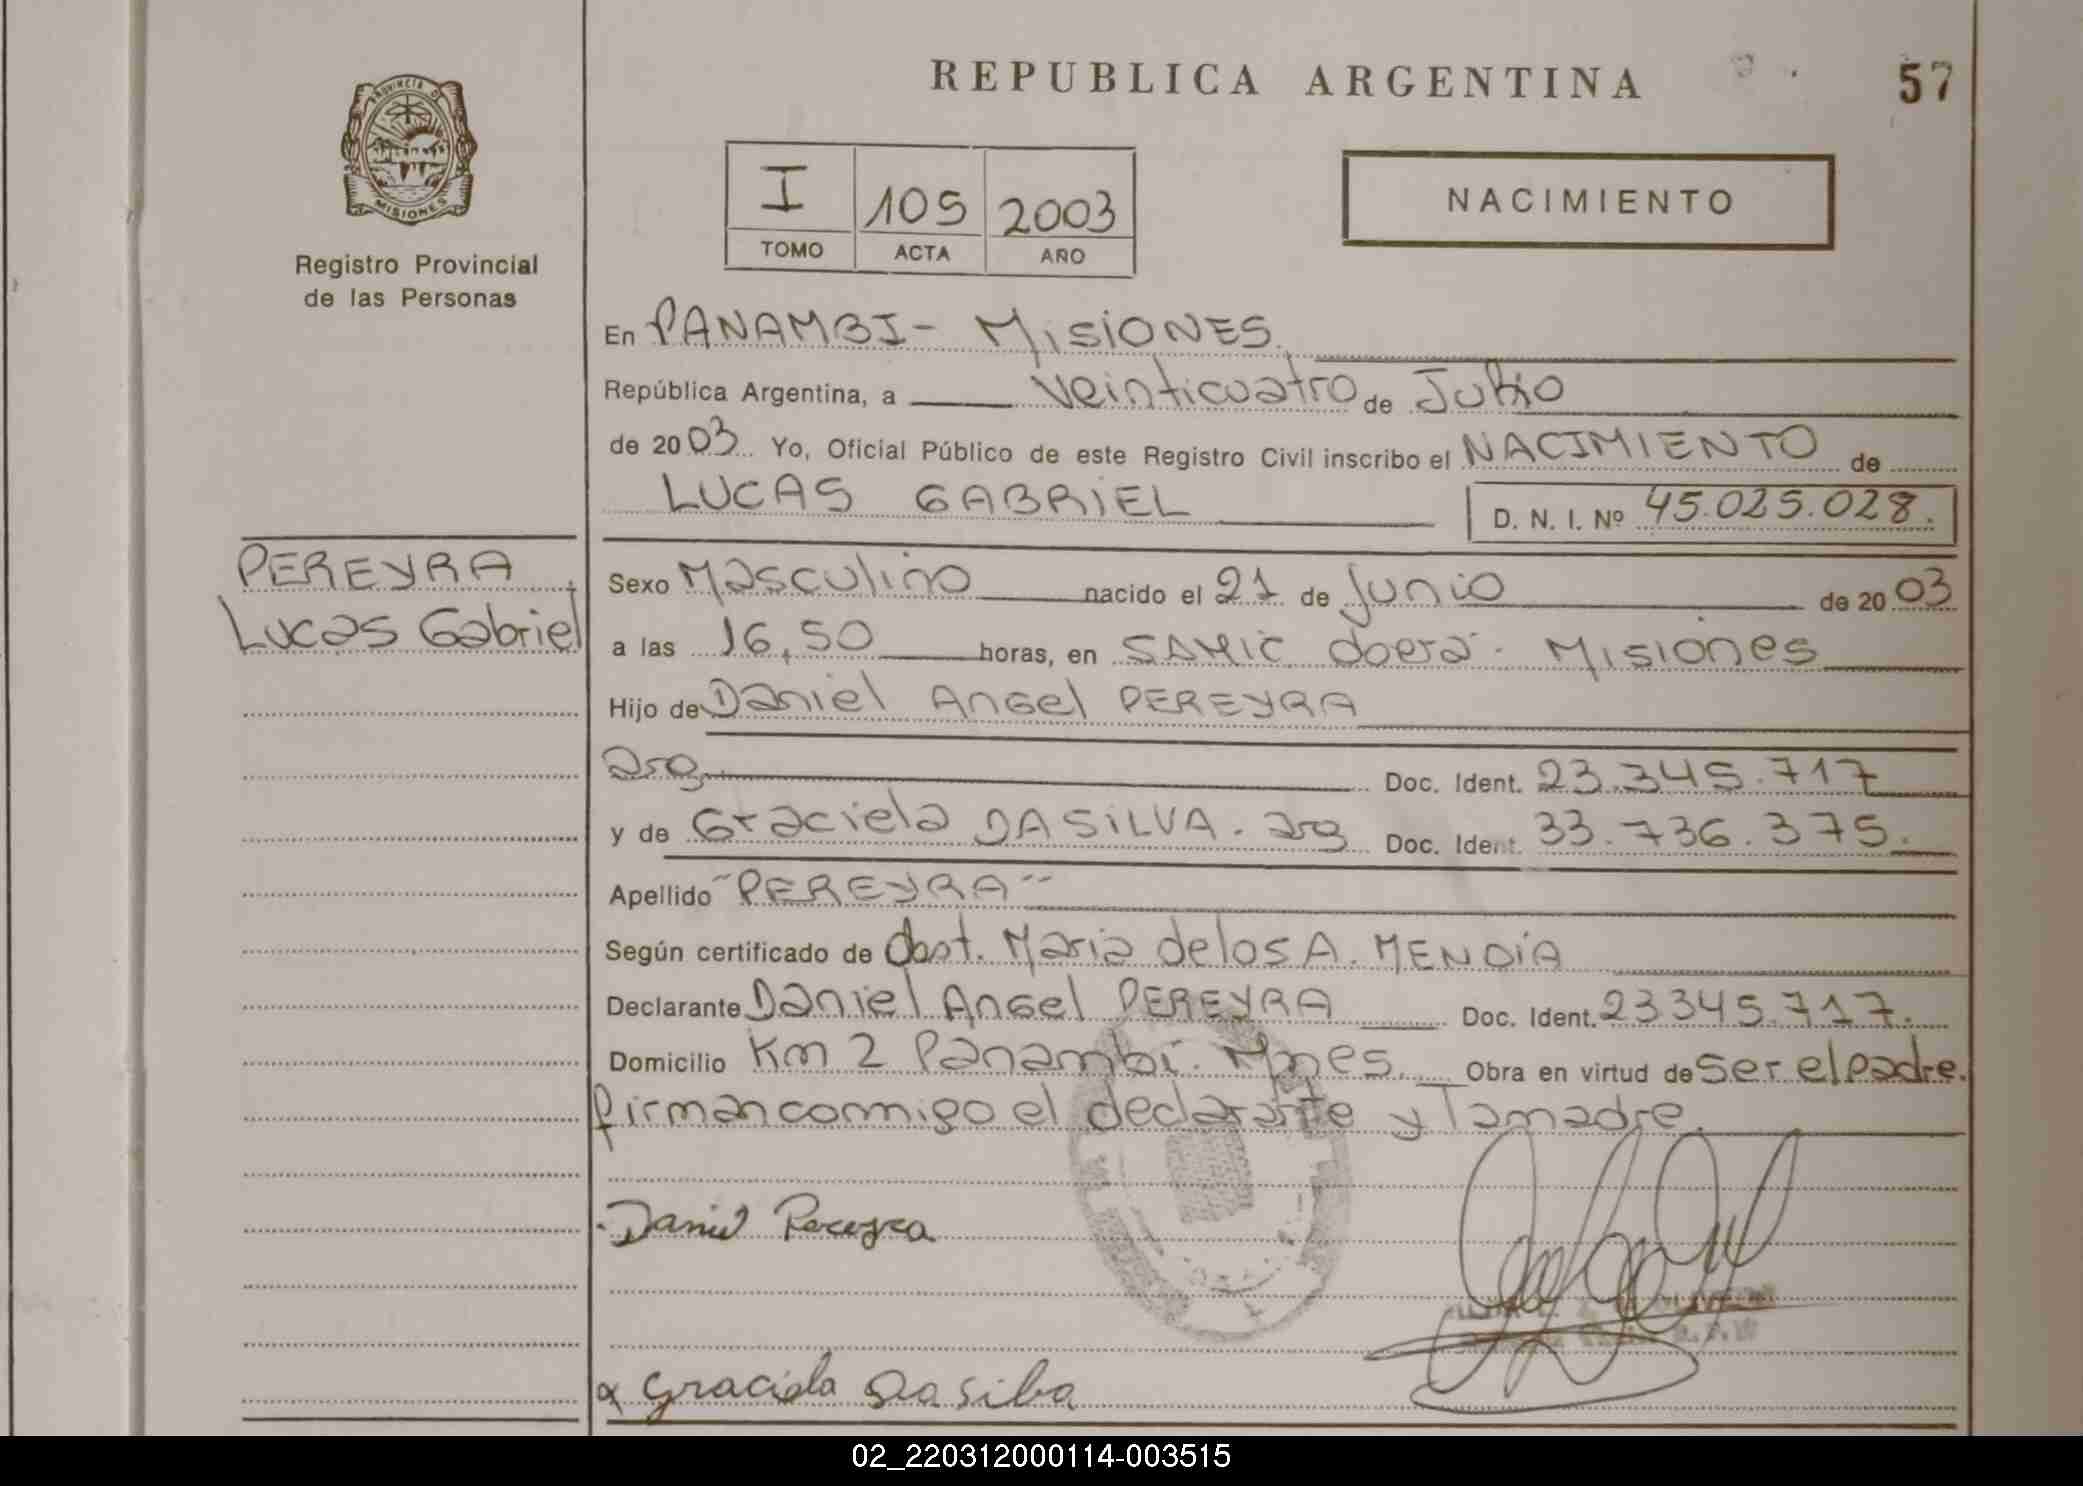 REPUBLICA ARGENTINA
57
PROVINCIA D
MISIONES
Registro Provincial
de las Personas
I 105 2003
TOMO ACTA AÑO
NACIMIENTO
En PANAMBI - MISIONES
República Argentina, a Veinticuatro de Julio
de 2003 Yo, Oficial Público de este Registro Civil inscribo el NACIMIENTO de
LUCAS GABRIEL D. N. I. Nº 45.025.028.
PEREYRA
Lucas Gabriel
Sexo Masculino nacido el 21 de Junio de 2003
a las 16,50 horas, en SAMIC Oberá - Misiones
Hijo de Daniel Angel PEREYRA
arg. Doc. Ident. 23.345.717
y de Graciela DA SILVA. arg Doc. Ident. 33.736.375.
Apellido "PEREYRA"
Según certificado de Obst. Maria de los A. MENDÍA
Declarante Daniel Angel PEREYRA Doc. Ident. 23345.717.
Domicilio Km 2 Panambí. Mnes. Obra en virtud de Ser el padre.
firman conmigo el declarante y la madre.
Daniel Pereyra
Graciela Da silva
02_220312000114-003515